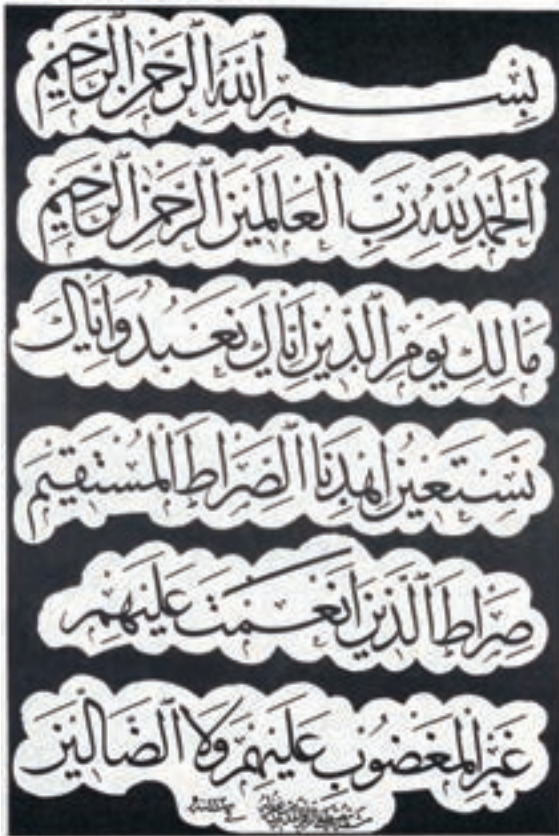 بِسْمِ ٱللّٰهِ ٱلرَّحْمٰنِ ٱلرَّحِيْمِ
اَلْحَمْدُ لِلّٰهِ رَبِّ الْعَالَمِيْنَ ٱلرَّحْمٰنِ ٱلرَّحِيْمِ
مَالِكِ يَوْمِ ٱلدِّيْنِ اِيَّاكَ نَعْبُدُ وَاِيَّاكَ
نَسْتَعِيْنُ اِهْدِنَا ٱلصِّرَاطَ الْمُسْتَقِيْمَ
صِرَاطَ ٱلَّذِيْنَ اَنْعَمْتَ عَلَيْهِمْ
غَيْرِ الْمَغْضُوْبِ عَلَيْهِمْ وَلَا ٱلضَّالِّيْنَ